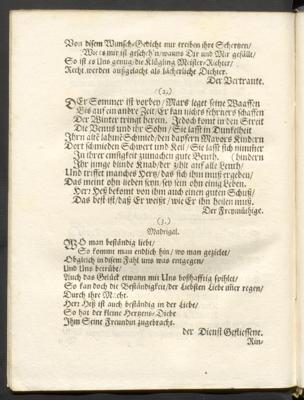 Von disem Wunsch-Gedicht nur treiben ihre Schertzen/
Wo: es mir ist gescheh'n/wanns Dir und Mir gefällt/
So ist es Uns genug/die Klügling Meister-Richter/
Recht werden außgelacht als lächerliche Dichter.
Der Vertraute.
(2.)
DEr Sommer ist vorbey/Mars leget seine Waaffen
Bis auf ein andre Zeit/Er kan nichts fehrners schaffen
Der Winter tringt herein. Jedoch komt in den Streit
Die Venus und ihr Sohn/Sie lasst in Dunkelheit
Ihrn alte lahme Schmied/den dapfern Mavors Kindern
Dort schmieden Schwert und Keil/Sie lasst sich nimmer
In ihrer emsigkeit zumachen gute Beuth. (hindern
Ihr junge blinde Knab/der zehlt auf alle Leuth/
Und triffet manches Hertz/das sich ihm muß ergeben/
Das meint ohn lieben seyn/sey sein ohn einig Leben.
Herz Heß bekomt von ihm auch einen guten Schuß/
Das best ist/daß Er weißt/wie Er ihn heilen muß.
Der Freymühige.
(3.)
Madrigal.
WO man beständig liebt/
So komt man endlich hin/wo man gezielet/
Obgleich in disem Fahl uns was entgegen/
Und Uns betrübt/
Auch das Gelück etwann mit Uns boßhafftig spihlet/
So kan doch die Beständigkeit/der Liebsten Liebe uns regen/
Durch ihre Macht.
Herz Heß ist auch beständig in der Liebe/
So hat der kleine Hertzens-Diebe
Ihm Seine Freundin zugebracht.
der Dienst Gefliessene.
Rin-